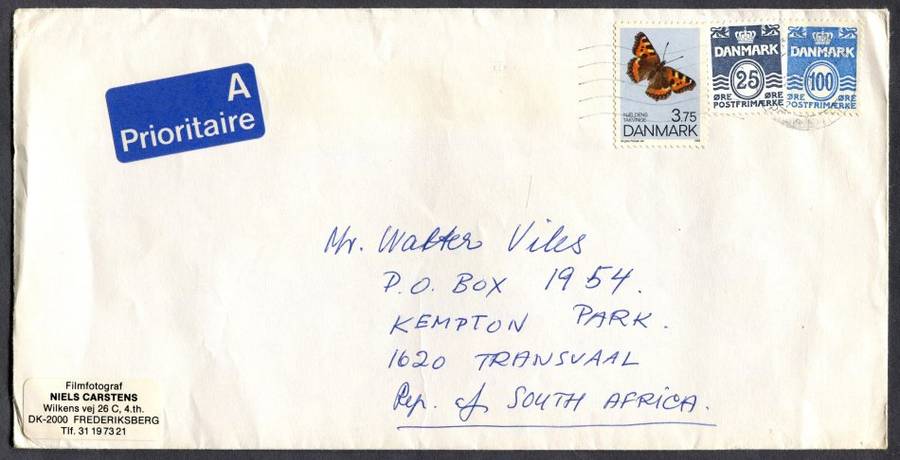 A
Prioritaire
3.75
DANMARK
DANMARK
25
ØRE ØRE
POSTFRIMÆRKE
DANMARK
100
ØRE ØRE
POSTFRIMÆRKE
Mr. Walter Viles
P.O. BOX 1954.
KEMPTON PARK.
1620 TRANSVAAL
Rep. of SOUTH AFRICA.
Filmfotograf
NIELS CARSTENS
Wilkens vej 26 C, 4.th.
DK-2000 FREDERIKSBERG
Tlf. 31 19 73 21